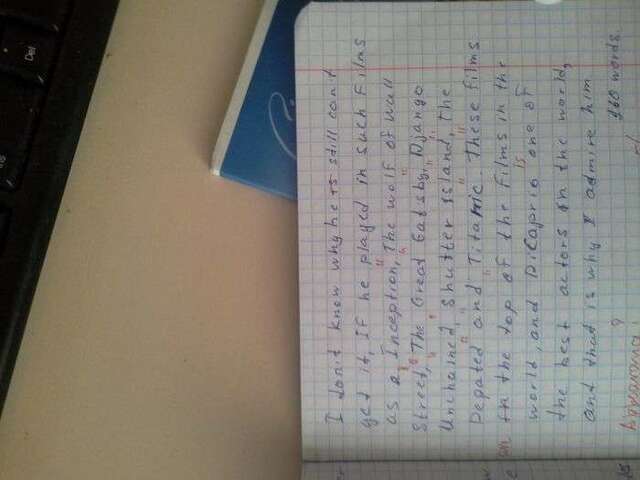 I don't know why he is still can't
get it, If he played in such Films
as a Inception, The wolf of wall
Street, The Great Gatsby, Django
Unchained, Shutter Island, The
Depated and Titanic. These films
on in the top of the Films in the
world, and DiCaprio is one of
the best actors in the world,
and that is why I admire him
160 words
Appearance?
Del